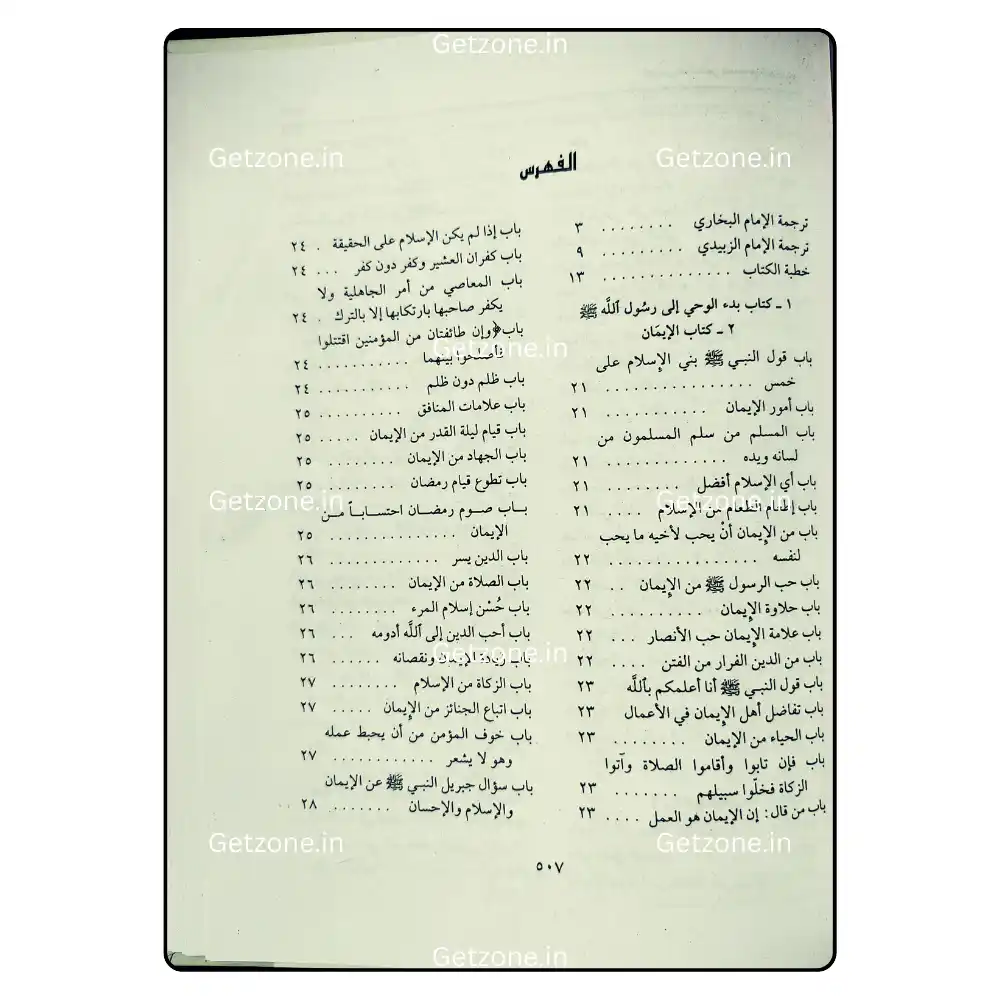 Getzone.in
Getzone.in
Getzone.in
الفهرس
ترجمة الإمام البخاري ........ ٣
ترجمة الإمام الزبيدي ........ ٩
خطبة الكتاب .............. ١٣
١ ـ كتاب بدء الوحي إلى رسُول ٱللَّه ﷺ
٢ ـ كتاب الإيمَان
باب قول النبي ﷺ بني الإسلام على
خمس ................ ٢١
باب أمور الإيمان ........... ٢١
باب المسلم من سلم المسلمون من
لسانه ويده ............. ٢١
باب أي الإسلام أفضل ........ ٢١
باب إطعام الطعام من الإسلام .... ٢١
باب من الإيمان أنْ يحب لأخيه ما يحب
لنفسه ................ ٢٢
باب حب الرسول ﷺ من الإيمان .. ٢٢
باب حلاوة الإيمان .......... ٢٢
باب علامة الإيمان حب الأنصار ... ٢٢
باب من الدين الفرار من الفتن .... ٢٢
باب قول النبي ﷺ أنا أعلمكم بٱللَّه ٢٣
باب تفاضل أهل الإيمان في الأعمال ٢٣
باب الحياء من الإيمان ........ ٢٣
باب فإن تابوا وأقاموا الصلاة وآتوا
الزكاة فخلّوا سبيلهم ....... ٢٣
باب من قال: إن الإيمان هو العمل .... ٢٣
باب إذا لم يكن الإسلام على الحقيقة . ٢٤
باب كفران العشير وكفر دون كفر ... ٢٤
باب المعاصي من أمر الجاهلية ولا
يكفر صاحبها بارتكابها إلا بالترك . ٢٤
باب ﴿وإن طائفتان من المؤمنين اقتتلوا
فأصلحوا بينهما ........... ٢٤
باب ظلم دون ظلم ........... ٢٤
باب علامات المنافق .......... ٢٥
باب قيام ليلة القدر من الإيمان ..... ٢٥
باب الجهاد من الإيمان ........ ٢٥
باب تطوع قيام رمضان ........ ٢٥
باب صوم رمضان احتساباً من
الإيمان ............... ٢٥
باب الدين يسر ............. ٢٦
باب الصلاة من الإيمان ........ ٢٦
باب حُسْن إسلام المرء ........ ٢٦
باب أحب الدين إلى ٱللَّه أدومه ... ٢٦
باب زيادة الإيمان ونقصانه ...... ٢٦
باب الزكاة من الإسلام ........ ٢٧
باب اتباع الجنائز من الإيمان ..... ٢٧
باب خوف المؤمن من أن يحبط عمله
وهو لا يشعر ............ ٢٧
باب سؤال جبريل النبي ﷺ عن الإيمان
والإسلام والإحسان ....... ٢٨
Getzone.in
Getzone.in
Getzone.in
Getzone.in
Getzone.in
Getzone.in
٥٠٧
Getzone.in